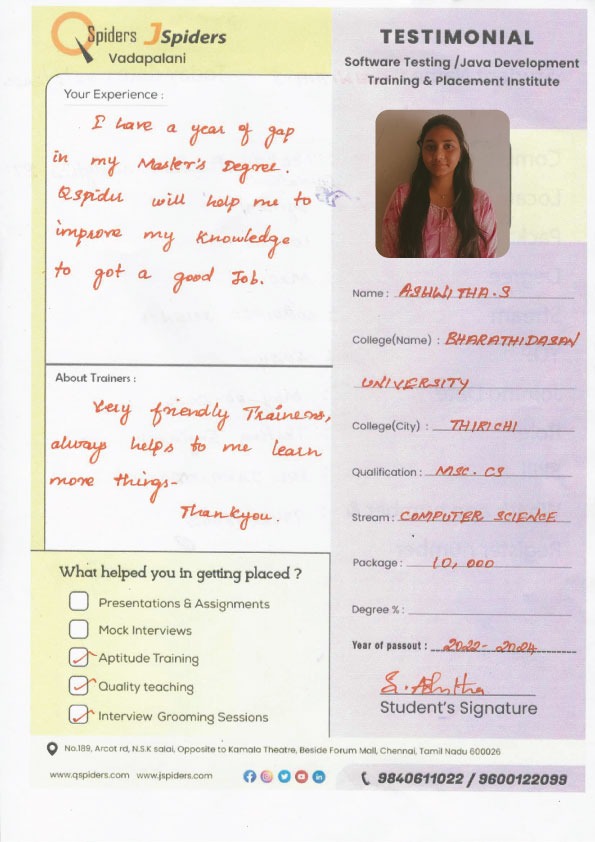 QSpiders JSpiders
Vadapalani
TESTIMONIAL
Software Testing /Java Development
Training & Placement Institute
Your Experience :
I have a year of gap
in my Master's Degree.
Qspider will help me to
improve my Knowledge
to got a good Job.
About Trainers :
Very friendly Traineers,
always helps to me learn
more things-
Thankyou.
What helped you in getting placed ?
Presentations & Assignments
Mock Interviews
Aptitude Training
Quality teaching
Interview Grooming Sessions
Name : ASHWITHA.S
College(Name) : BHARATHIDASAN
UNIVERSITY
College(City) : THIRICHI
Qualification : MSC. CS
Stream : COMPUTER SCIENCE
Package : 10,000
Degree % :
Year of passout : 2022- 2024
Student's Signature
No.189, Arcot rd, N.S.K salai, Opposite to Kamala Theatre, Beside Forum Mall, Chennai, Tamil Nadu 600026
www.qspiders.com www.jspiders.com
9840611022 / 9600122099